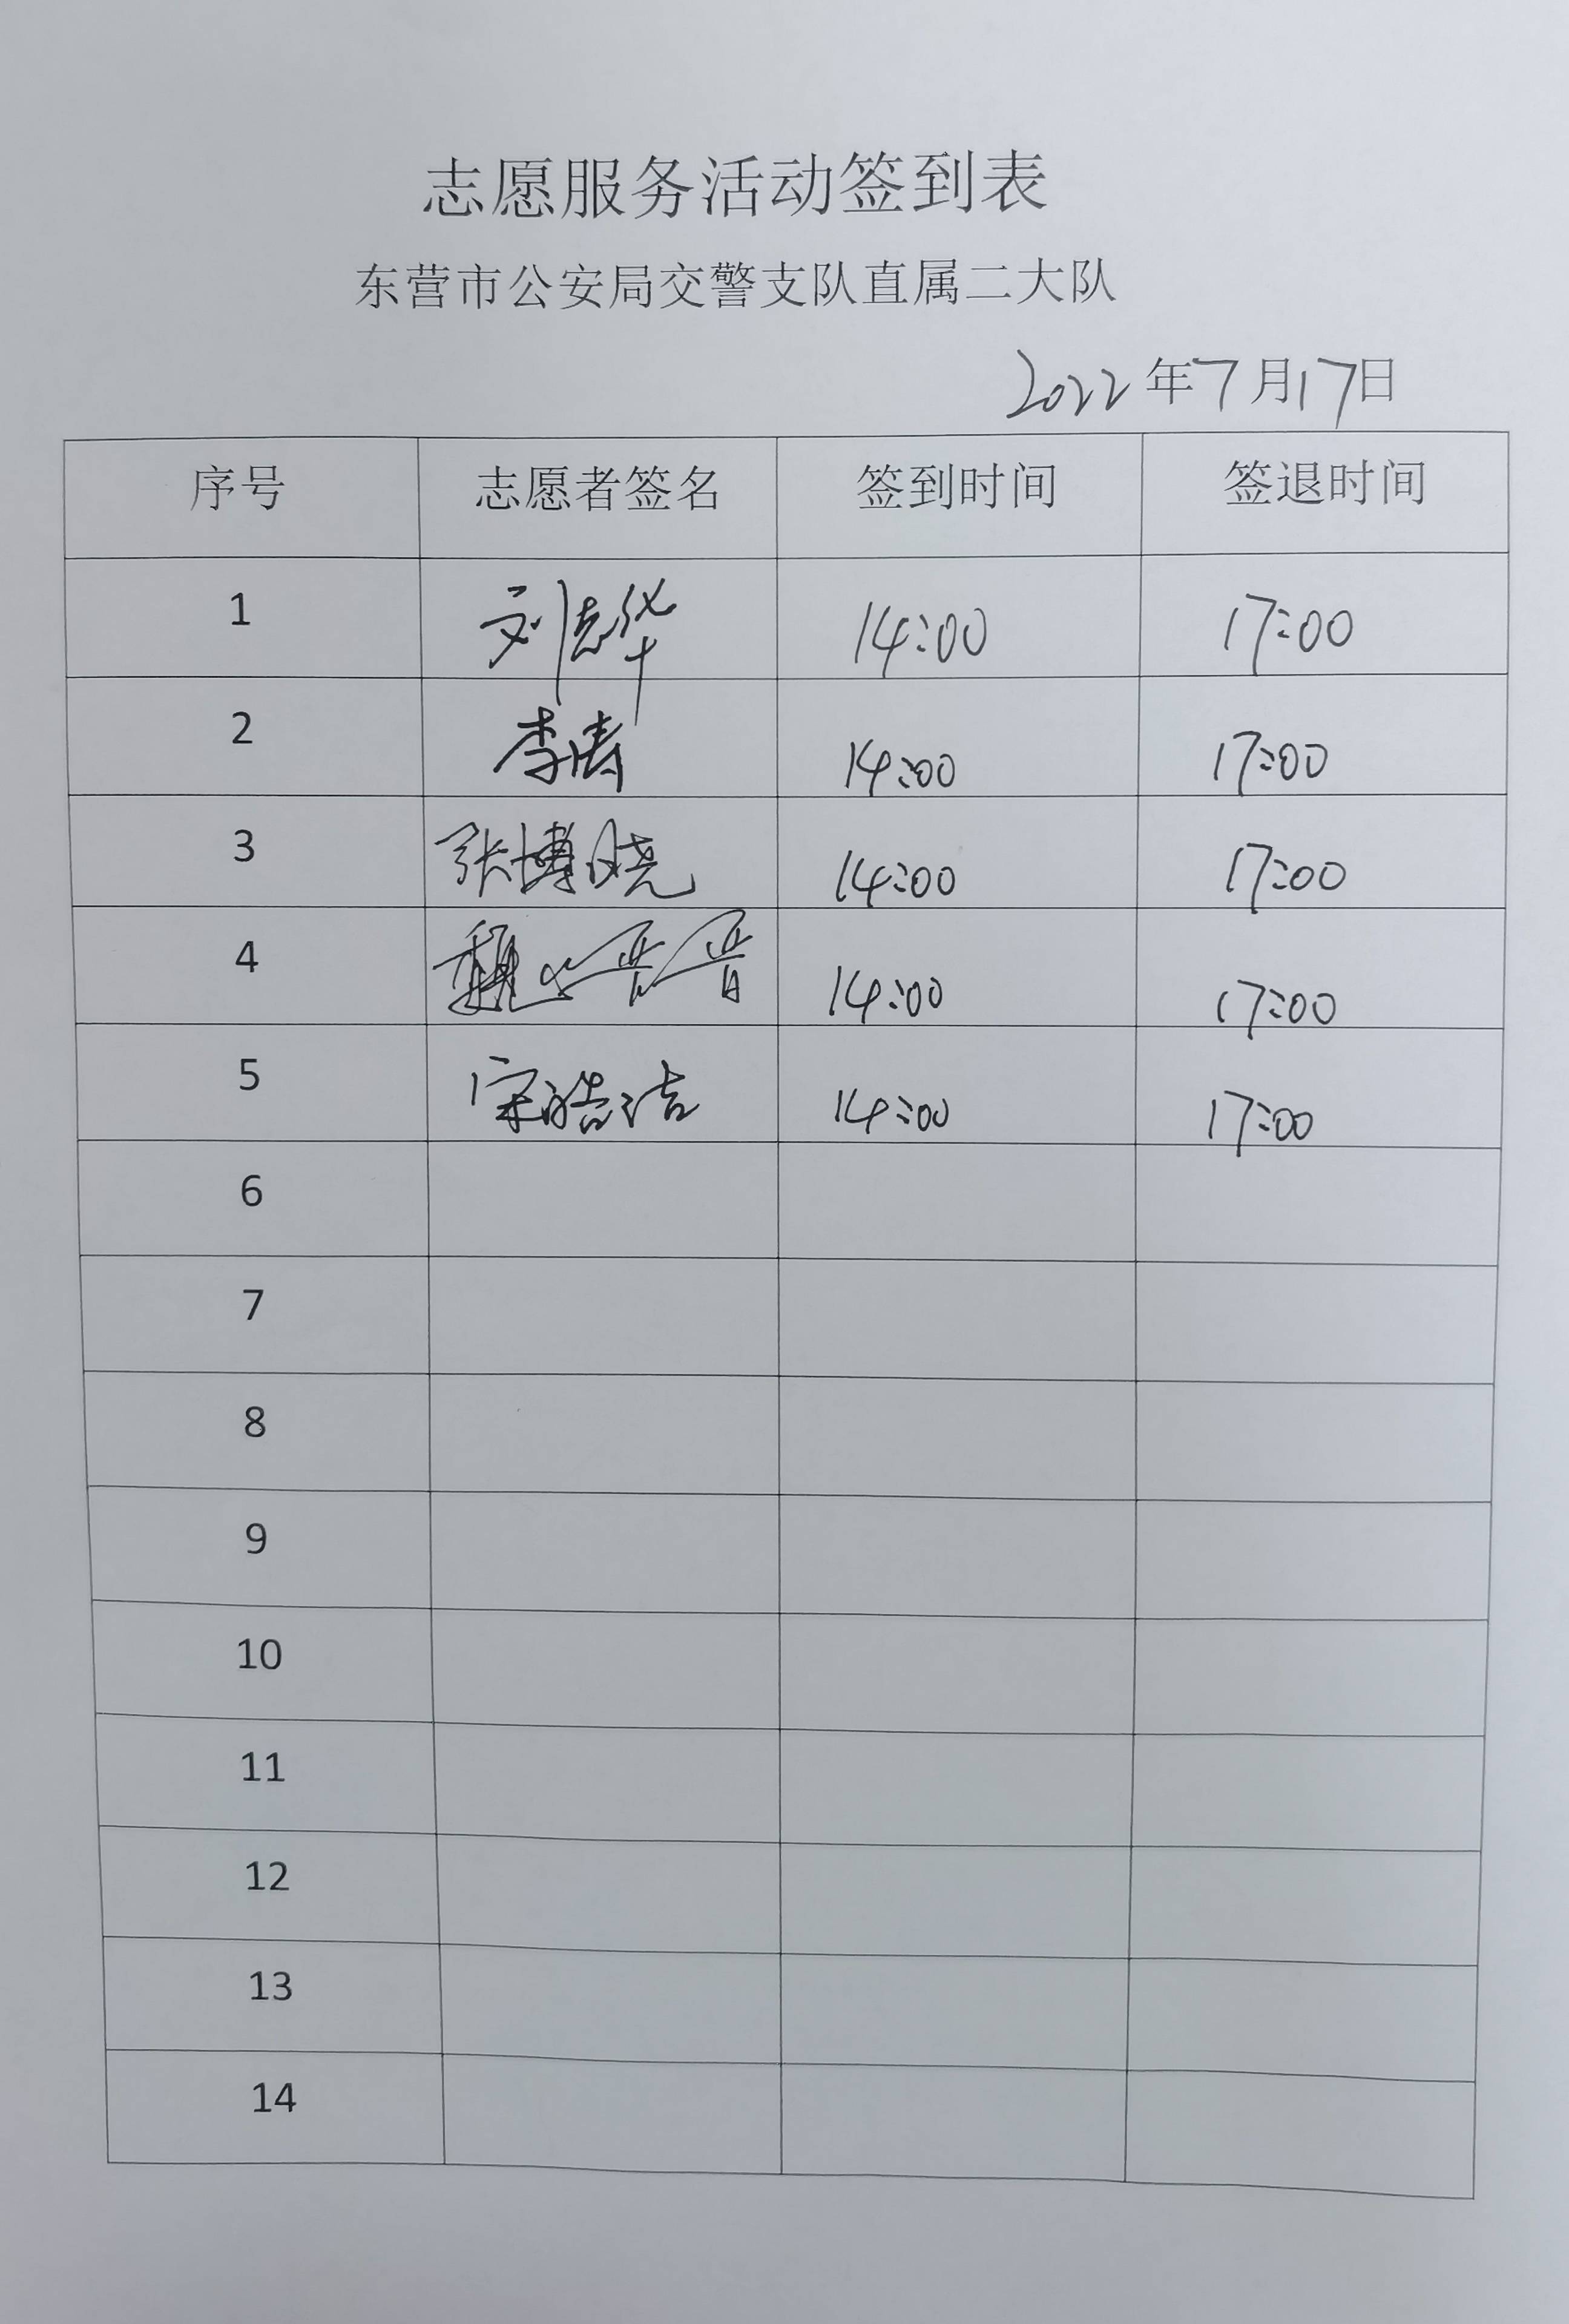 志愿服务活动签到表
东营市公安局交警支队直属二大队
2022年7月17日
序号 志愿者签名 签到时间 签退时间
1 刘志华 14:00 17:00
2 李涛 14:00 17:00
3 张博晓 14:00 17:00
4 魏 14:00 17:00
5 宋皓洁 14:00 17:00
6
7
8
9
10
11
12
13
14